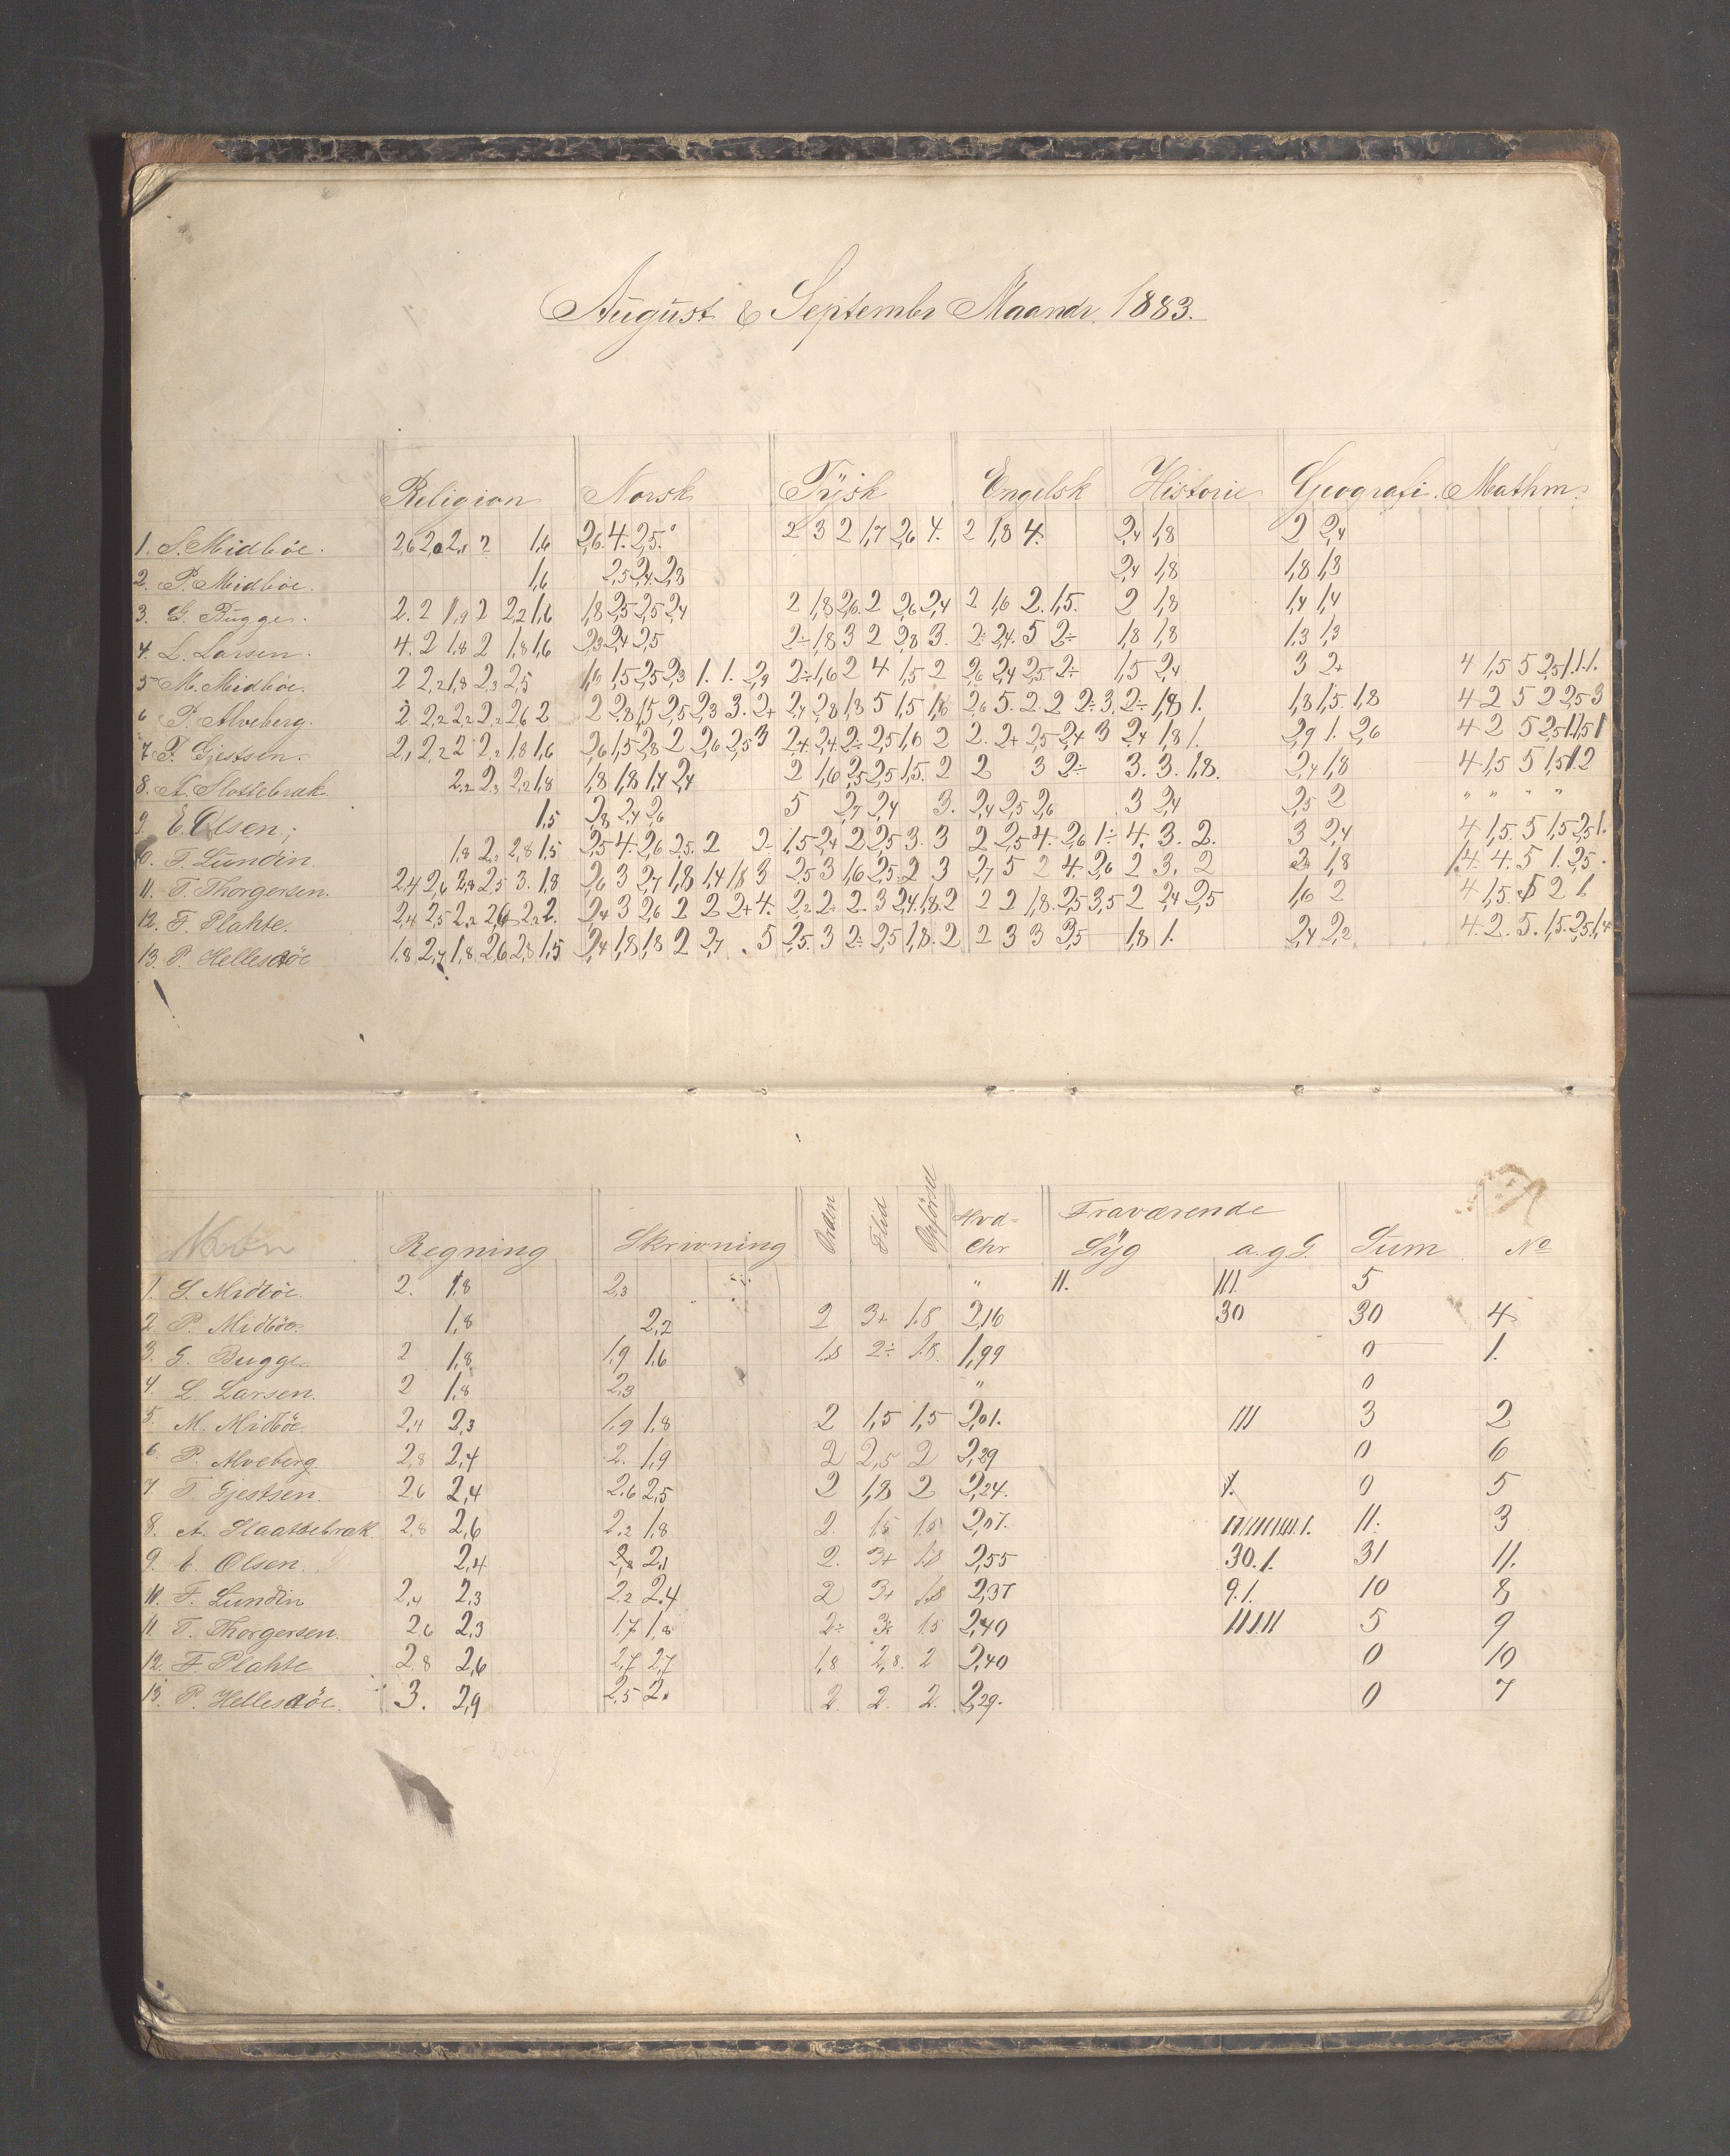 August & Septembr Maandr. 1883.
Religion Norsk Tÿsk Engelsk Historie Geografi. Mathm.
1. S. Midböe. 2,6 2,0 2,1 ? 1,6 2,6. 4. 2,5. 2 3 2 1,7 2,6 4. 2 1,8 4. 2,4 1,8 2 2,4
2. P. Midböe. 1,6 2,5 2,4. 2,3 2,4 1,8 1,8 1,3
3. G. Bugge. 2. 2 1,9 2 2,2 1,6 1,8 2,5 2,5 2,4 2 1,8 2,6. 2 2,6 2,4 2 1,6 2. 1,5. 2 1,8 1,4 1,4
4. L. Larsen. 4. 2 1,8 2 1,8 1,6 2,3 2,4 2,5 2÷ 1,8 3 2 2,8 3. 2÷ 2,4. 5 2÷ 1,8 1,8 1,3 1,3
5 M. Midböe. 2 2,2 1,8 2,3 2,5 1,6 1,5 2,5 2,3 1. 1. 2,9 2÷ 1,6 2 4 1,5 2 2,6 2,4 2,5 2÷ 1,5 2,4 3 2+ 4 1,5 5 2,5 1. 1. 1.
6 P. Alveberg. 2. 2,2 2,2 2,2 2,6 2 2 2,8 1,5 2,5 2,3 3. 2+ 2,4 2,8 1,8 5 1,5 1,6 2,6 5. 2. 2 2÷ 3. 2÷ 1,8 1. 1,8 1,5. 1,8 4 2 5 2 2,5 3
7. T. Gjestsen. 2,1 2,2 2 2,2 1,8 1,6 2,6 1,5 2,8 2 2,6 2,5 3 2,4. 2,4. 2÷ 2,5 1,6 2 2. 2+ 2,5 2,4 3 2,4 1,8 1. 2,9 1. 2,6 4 2 5 2,5 1 1,5 1
8. A. Slottebrak. 2,2 2,3 2,2 1,8 1,8 1,8 1,4 2,4 2 1,6 2,5 2,5 1,5. 2 2 3 2÷ 3. 3. 1,8. 2,4 1,8 4 1,5 5 1,5 1. 2
9. E. Olsen; 1,5 2,8 2,4 2,6 5 2,7 2,4 3. 2,4 2,5 2,6 3 2,4 2,5 2 " " " "
10. F. Lundin. 1,8 2,2 2,8 1,5 2,5 4. 2,6 2,5. 2 2÷ 1,5 2,4 2 2,5 3. 3 2 2,5 4. 2,6 1÷ 4. 3. 2. 3 2,4 4 1,5. 5 1,5 2,5 1.
11. T. Thorgersen. 2,4 2,6 2,8 2,5 3. 1,8 2,6 3 2,7 1,8 1,4 1,8 3 2,5 3 1,6 2,5 2 3 2,7 5 2 4. 2,6 2 3. 2 2+ 1,8 4. 4. 5 1. 2,5.
12. F. Plahte. 2,4 2,5 2,2 2,6 2,2 2. 2,4 3 2,6 2 2 2+ 4. 2,2 2÷ 2. 3 2,4 1,8. 2 2 2 1,8. 2,5 3,5 2 2,4 2,5 1,6 2 4 1,5. 5 2 1
13. P. Hellesöe 1,8 2,4 1,8 2,6 2,8 1,5 2,4 1,8 1,8 2 2,7 5 2,5. 3 2÷ 2,5 1,8. 2 2 3 3 3,5 1,8 1. 2,4 2,2 4. 2. 5. 1,5. 2,5 1,4
Navn Regning Skrivning Orden Flid Opförsel Hvd-Chr Fraværende Sÿg a.g.G. Sum No
1. S. Midböe. 2. 1,8 2,3 " 11. 111. 5
2 P. Midböe. 1,8 2,2 2 3+ 1.8 2,16 30 30 4
3. G. Bugge. 2 1,8 1,9 1,6 1,8 2÷ 1,8. 1,99 0 1.
4. L. Larsen. 2 1,8 2,3 " 0
5. M. Midböe 2,4 2,3 1,9 1,8 2 1,5 1,5 2,01. 111 3 2
6. P. Alveberg 2,8 2,4 2. 1,9 2 2,5 2 2,29 0 6
7 T. Gjestsen. 2,6 2,4 2,6 2,5 2 1,8 2 2,24. 0 5
8. A. Slaattebrak 2,8 2,6 2,2 1,8 2. 1,5 1,5 2,07. 11. 3
9. E. Olsen. 2,4 2,8 2,1 2. 3+ 1,8 2,55 30.1. 31 11.
10. F. Lundin 2,4 2,3 2,2 2,4 2 3+ 1,8 2,37 9.1. 10 8
11. T. Thorgersen. 2,6 2,3 1,7 1,8 2÷ 3+ 1,5 2,40 11111 5 9
12. F. Plahte 2,8 2,6 2,7 2,7 1,8 2,8. 2 2,40 0 10
13. P. Hellesöe. 3. 2,9 2,5 2. 2. 2. 2. 2,29. 0 7